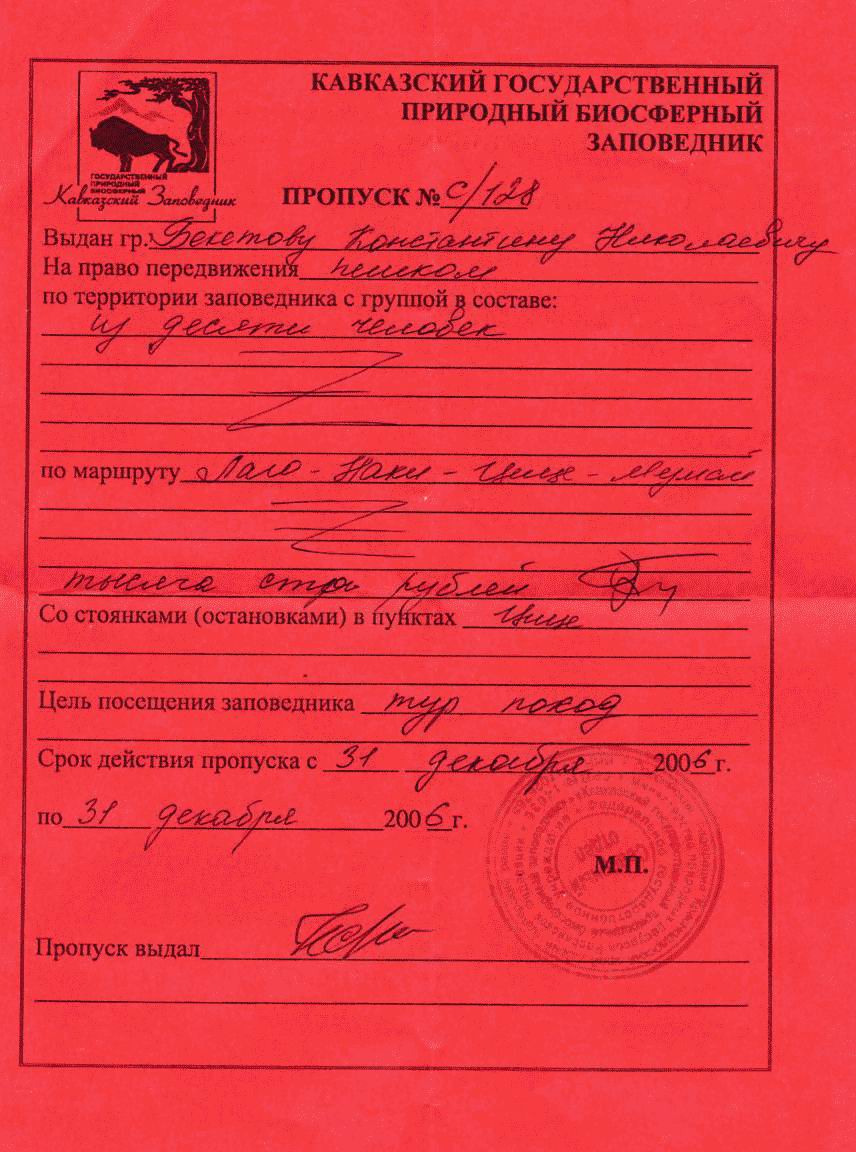 КАВКАЗСКИЙ ГОСУДАРСТВЕННЫЙ
ПРИРОДНЫЙ БИОСФЕРНЫЙ
ЗАПОВЕДНИК
ГОСУДАРСТВЕННЫЙ
ПРИРОДНЫЙ
БИОСФЕРНЫЙ
Кавказский Заповедник
ПРОПУСК № С/128
Выдан гр. Бекетову Константину Николаевичу
На право передвижения пешком
по территории заповедника с группой в составе:
из десяти человек
по маршруту Лаго-Наки - Цице -
тысяча сто рублей
Со стоянками (остановками) в пунктах Цице
Цель посещения заповедника тур поход
Срок действия пропуска с 31 декабря 2006 г.
по 31 декабря 2006 г.
М.П.
Пропуск выдал